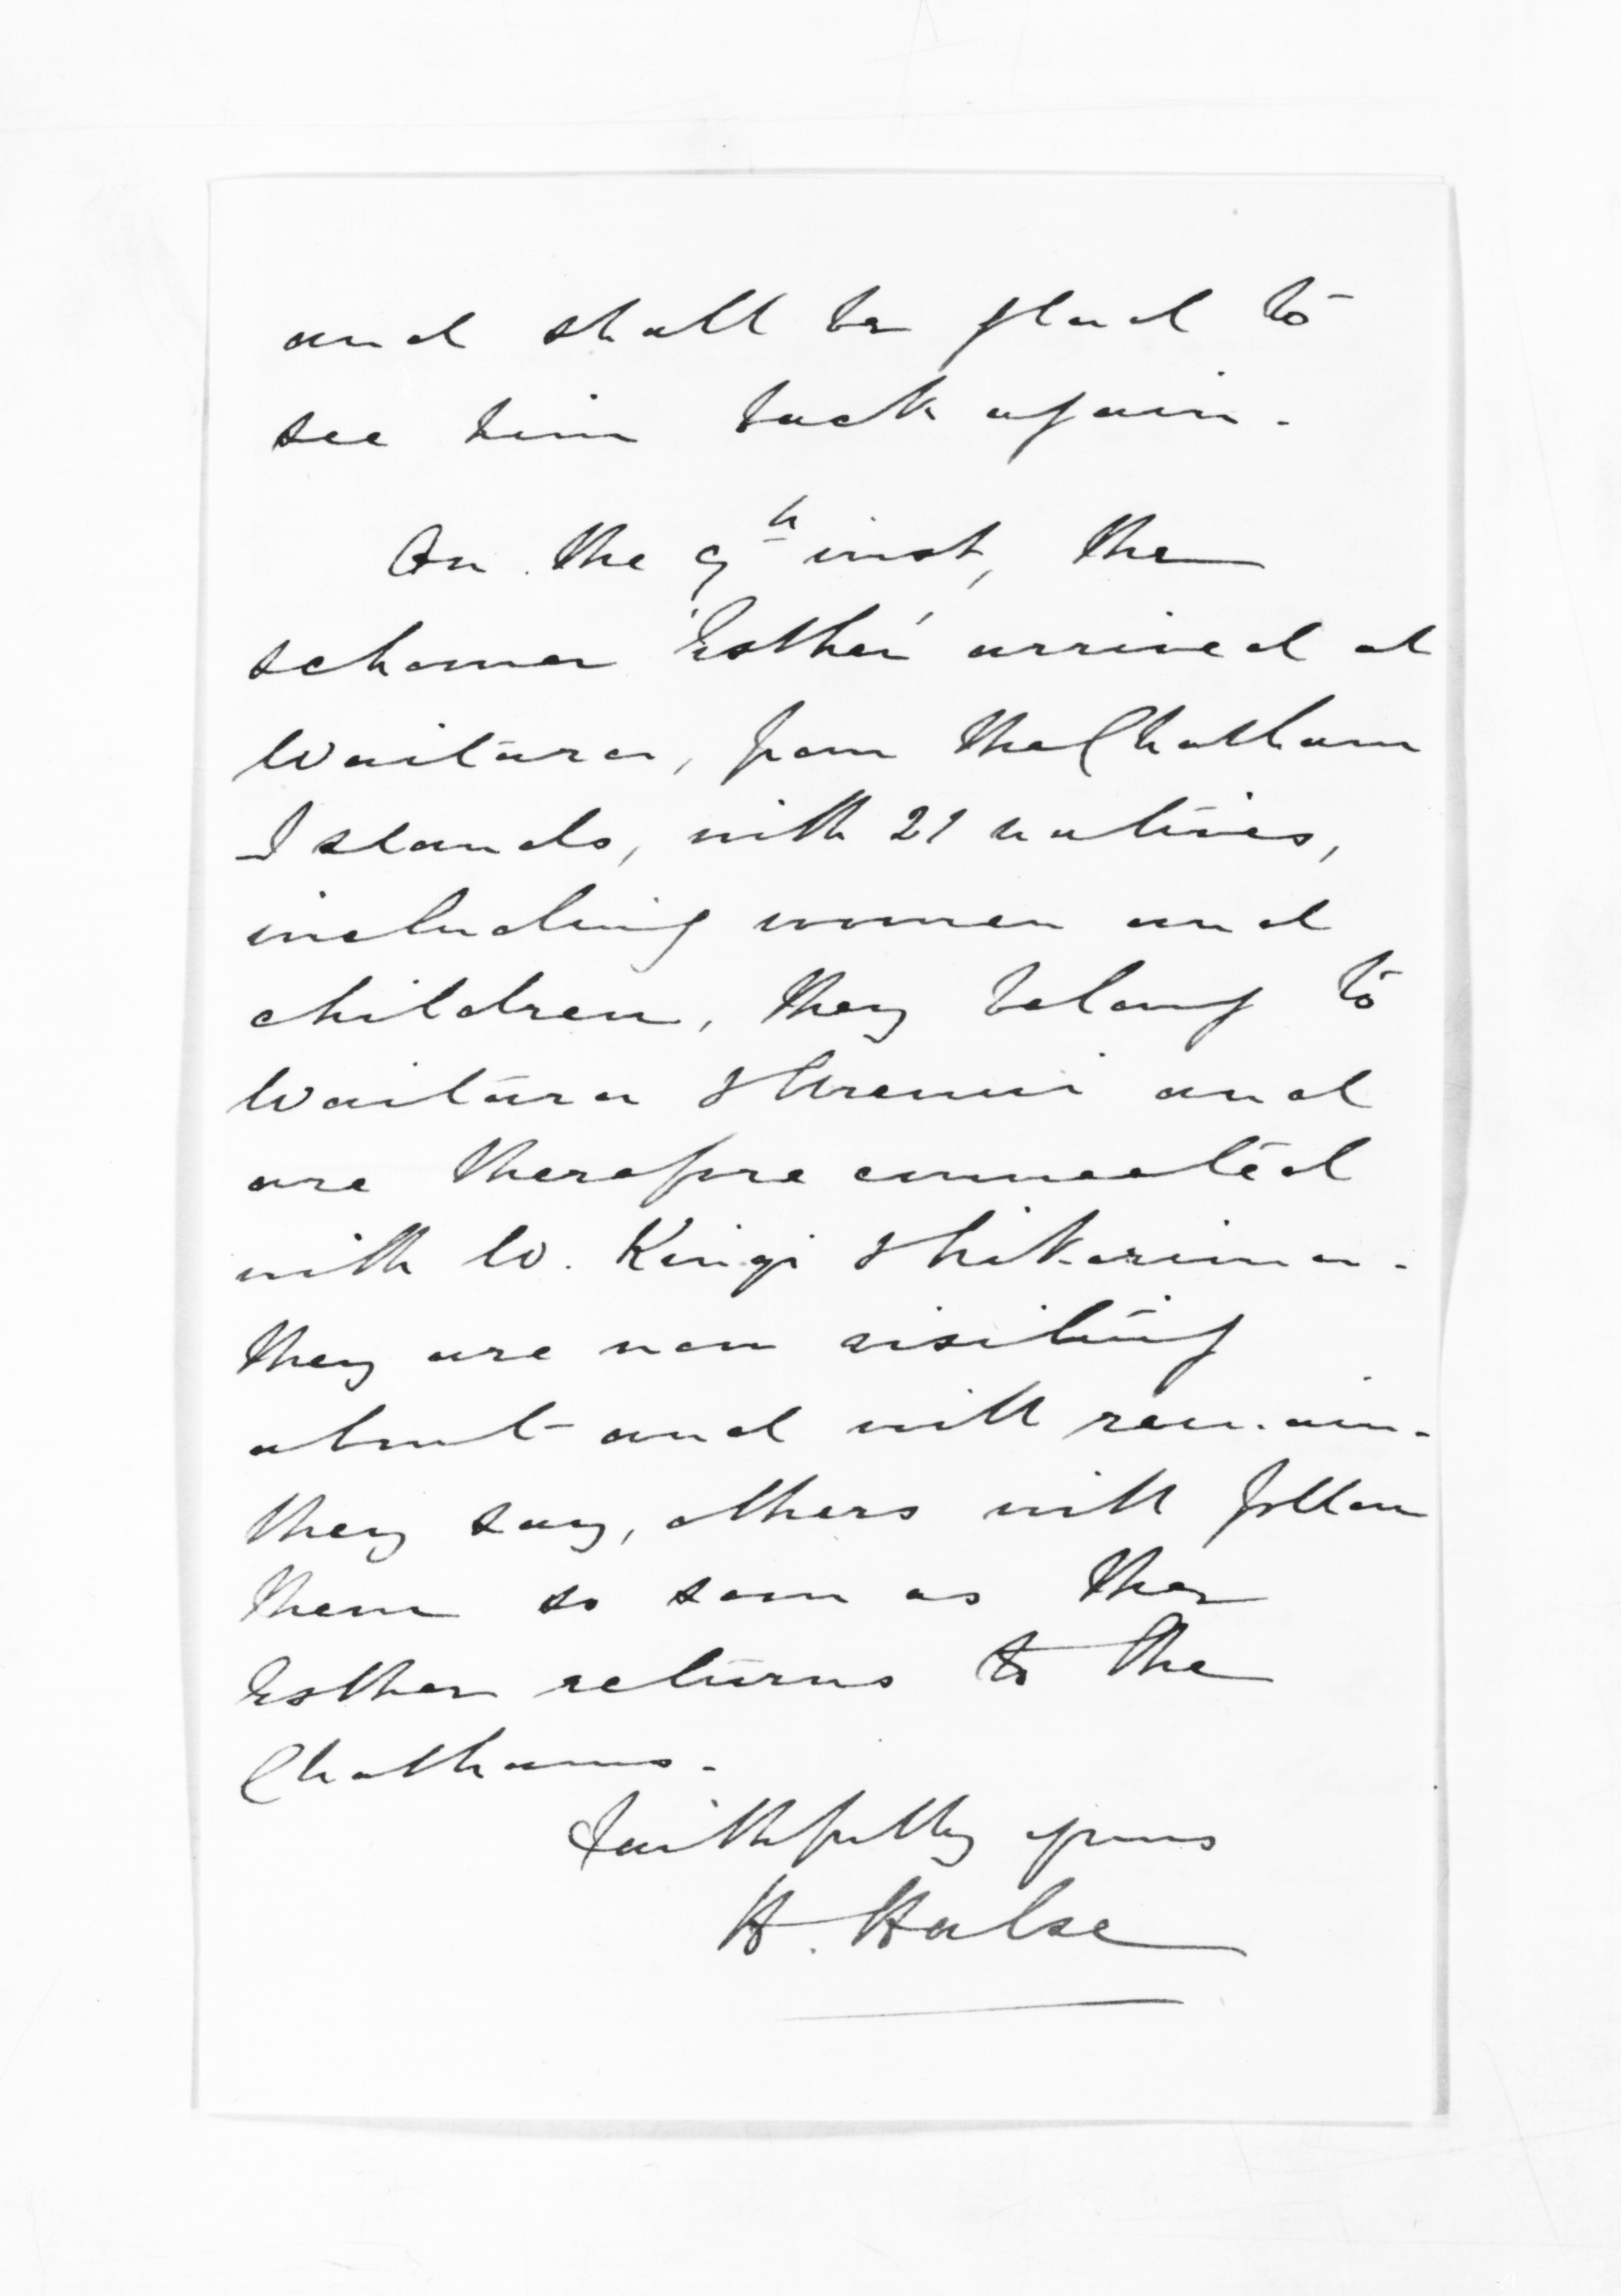 and shall be glad to
see him back again.
On the 9th inst, the
schooner 'Esther' arrived at
Waitara, from the Chatham
Islands, with 21 natives,
including women and
children, they belong to
Waitara & Urenui and
are therefore connected
with W. Kingi & Ihikarima.
They are now visiting
about and will remain.
They say, others will follow
them so soon as the
Esther returns to the
Chathams.
Faithfully yours
H. Halse